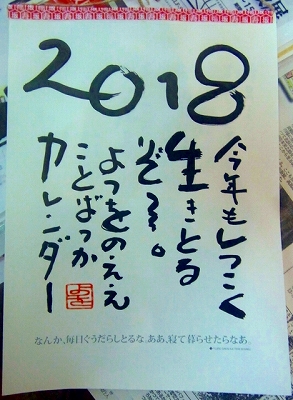 2018
今年もしつこく
生きとる
ぞ〜。
よつをのええ
ことばっか
カレンダー
なんか、毎日ぐうだらしとるな。ああ、寝て暮らせたらなあ。